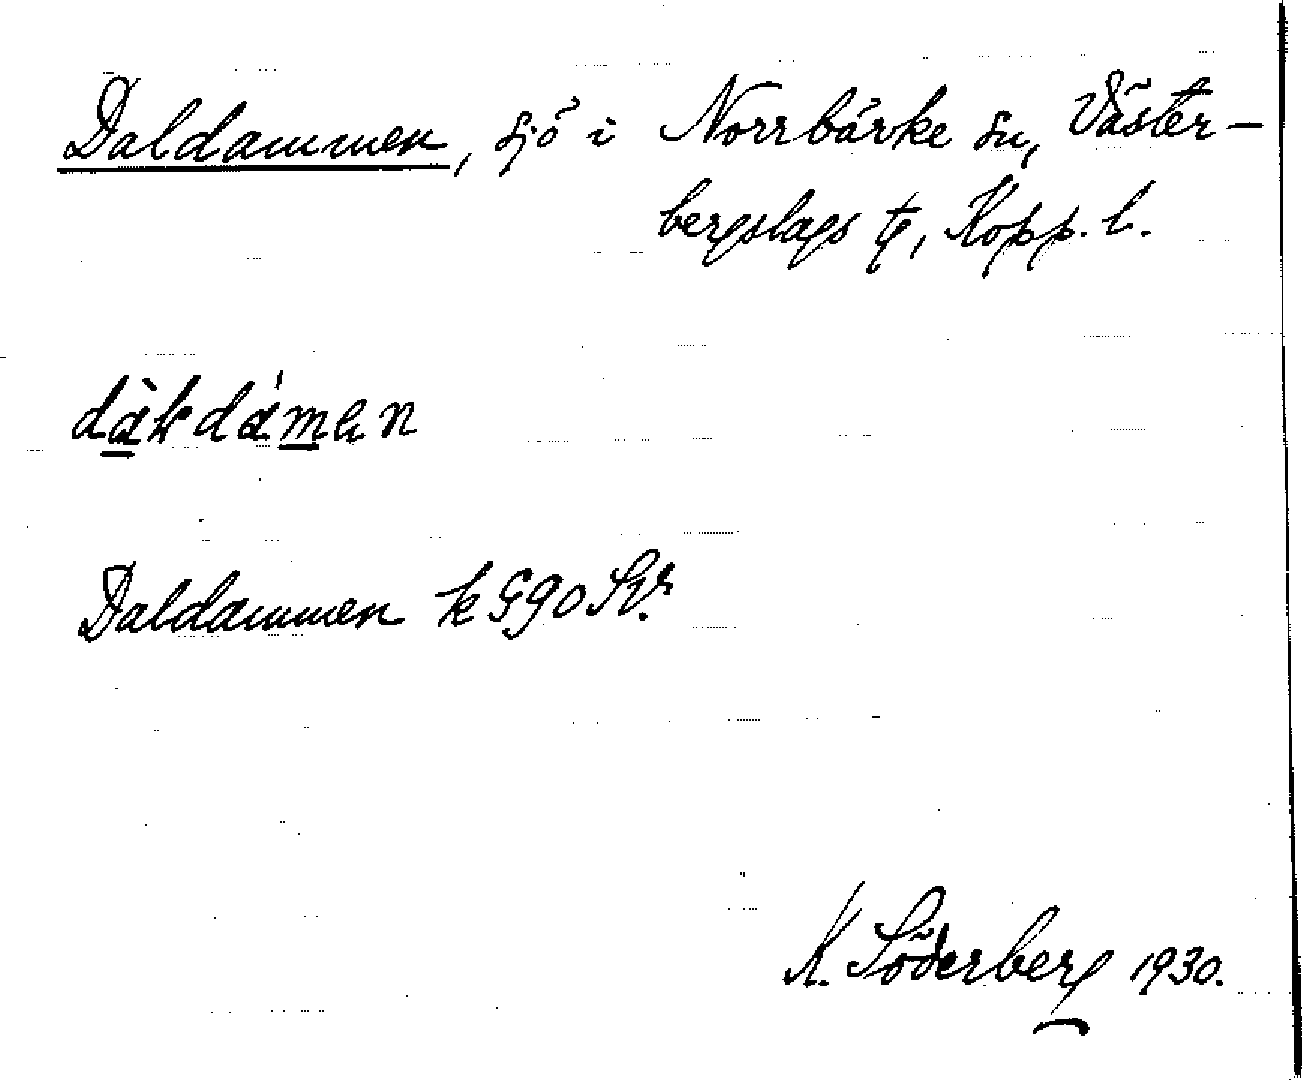 Daldammen, sjö i Norrbärke sn, Väster-
bergslags tg, Kopp. l.
Daldammen k 590 Sv.
K. Söderberg 1930.